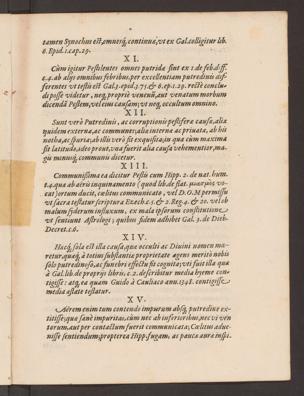 tamen Synochus est, omnisq́; continua, vt ex Gal. colligitur lib.
6. Epid. 1. cap. 29.
XI.
Cùm igitur Pestilentes omnes putridæ sint ex 1. de feb. diff.
c. 4. ab alijs omnibus febribus, per excellentiam putredinis dif-
ferentes vt testis est Gal. 3. epid. 3. 75. & 6. epi. 1. 29. rectè conclu-
di posse videtur, neq; propriè venenū, aut venatum morbum
dicendā Pestem, vel eius causam; vt neq; occultum omnino.
XII.
Sunt verò Putredinis, ac corruptionis pestiferæ causæ, alia
quidem externa, ac communis; alia interna ac priuata, ab his
notha, ac spuria; ab illis verò sit exquisita, in qua cùm maxima
sit latitudo, adeo prout, vna fuerit alia causa vehementior, ma-
gis minusq́; communis dicetur.
XIII.
Communissima ea dicitur Pestis cum Hipp. 2. de nat. hum.
t. 4. quæ ab aëris inquinamento (quod lib. de flat. vo-
cat) ortum ducit, cælitus communicato, vel D. O. M. permissu
vt sacra testatur scriptura Ezech. c. 5. & 2. Reg. 4. & 20. vel ob
malum siderum influxum, ex mala ipsorum constitutione,
vt sentiunt Astrologi; quibus fidem adhibet Gal. 3. de Dieb.
Decret. c. 6.
XIV.
Hacq́; sola est illa causa, quæ occulti ac Diuini nomen me-
retur, quæq́; à totius substantiæ proprietate agens meritò nobis
solo putredinoso, ac funebri effectu sit cognita; vti fuit illa quæ
à Gal. lib. de proprijs libris c. 2. describitur media hyeme con-
tigisse: atq́; ea quam Guido à Cauliaco ann. 1348. contigisse
media æstate testatur.
XV.
Aërem enim tum contends impurum absq́; putredine ex-
titisse; qua sanè impuritas, cùm nec ab inferioribus, nec vi ven-
torum, aut per contactum fuerit communicata; Cælitus adue-
nisse sentiendum: propterea Hipp. fugam, ac pauca auræ inspi-